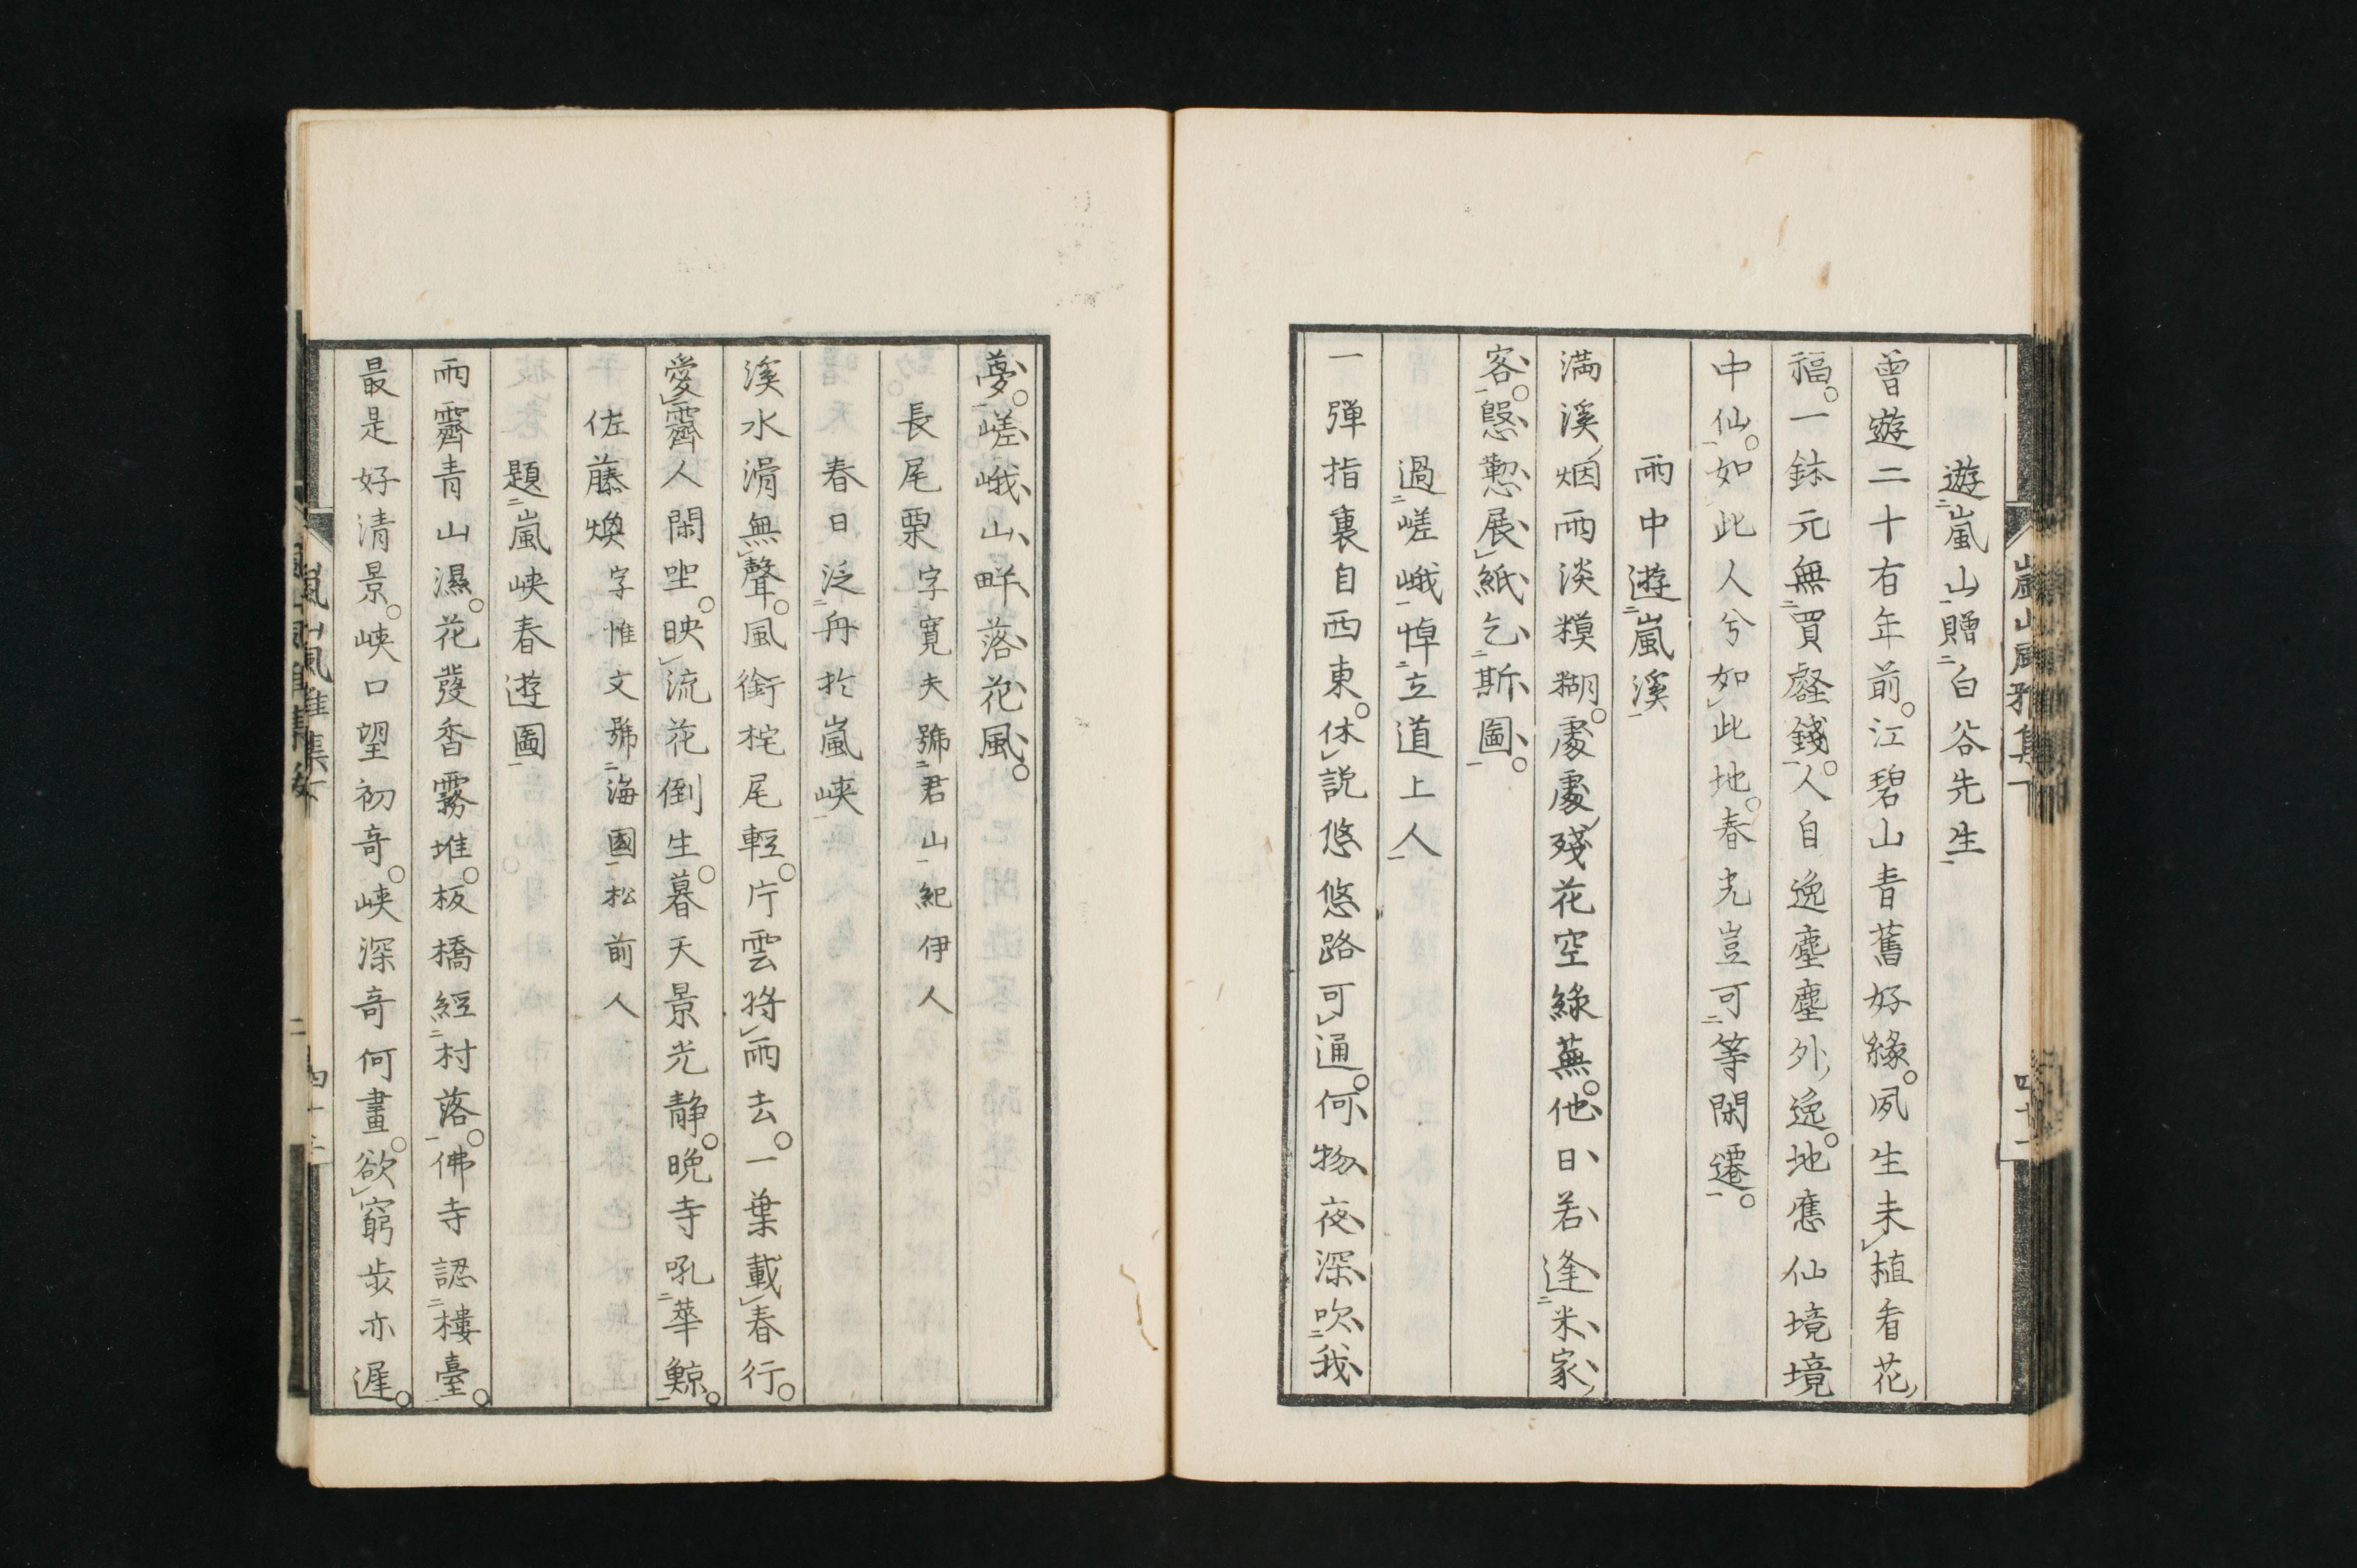 遊嵐山贈白谷先生
曾遊二十有年前江碧山青舊好緣夙生未植看花
福一鉢元無買壑錢人自逸塵塵外逸地應仙境境
中仙如此人兮如此地春光豈可等閑遷
雨中遊嵐溪
満溪烟雨淡糢糊處處殘花空綠蕪他日若逢米家
客慇懃展紙乞斯圖
過嵯峨悼立道上人
一彈指裏自西東休説悠悠路可通何物夜深吹我
夢嵯峨山畔落花風
長尾栗字寛夫號君山紀伊人
春日泛舟於嵐峡
溪水滑無聲風銜柁尾輕片雲将雨去一葉載春行
愛霽人閑坐映流花倒生暮天景光静晚寺吼華鯨
佐藤煥字惟文號海國松前人
題嵐峡春遊圖
雨霽青山濕花發香霧堆板橋經村落佛寺認樓臺
最是好清景峡口望初奇峡深奇何畫欲窮步亦遅